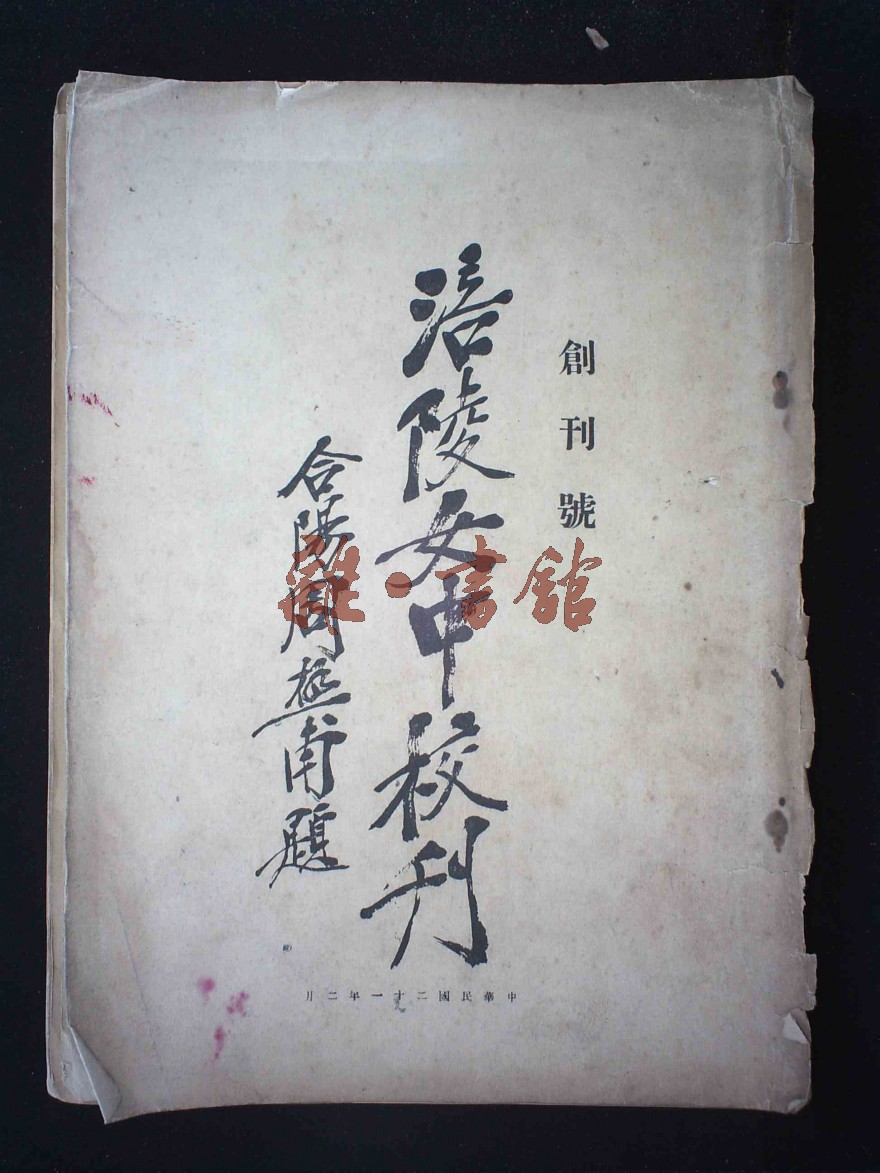 創刊號
涪陵女中校刊
合陽周極甫題
中華民國二十一年二月
雜·書館